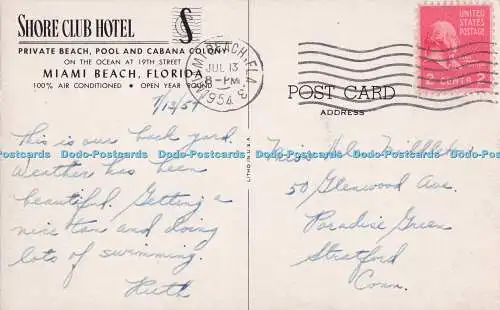 SHORE CLUB HOTEL
PRIVATE BEACH, POOL AND CABANA COLONY
ON THE OCEAN AT 19TH STREET
MIAMI BEACH, FLORIDA
100% AIR CONDITIONED • OPEN YEAR ROUND
MIAMI BEACH, FLA.
JUL 13
8-PM
1954
3
UNITED STATES POSTAGE
2 CENTS 2
POST CARD
ADDRESS
7/12/54
This is our back yard.
Weather has been
beautiful. Getting a
nice tan and doing
lots of swimming.
Ruth
LITHO IN U.S.A.
Miss Helen Middleton
50 Glenwood Ave.
Paradise Green
Stratford
Conn.
Dodo-Postcards Dodo-Postcards Dodo-Postcards Dodo-Postcards Dodo-Postcards Dodo-Postcards